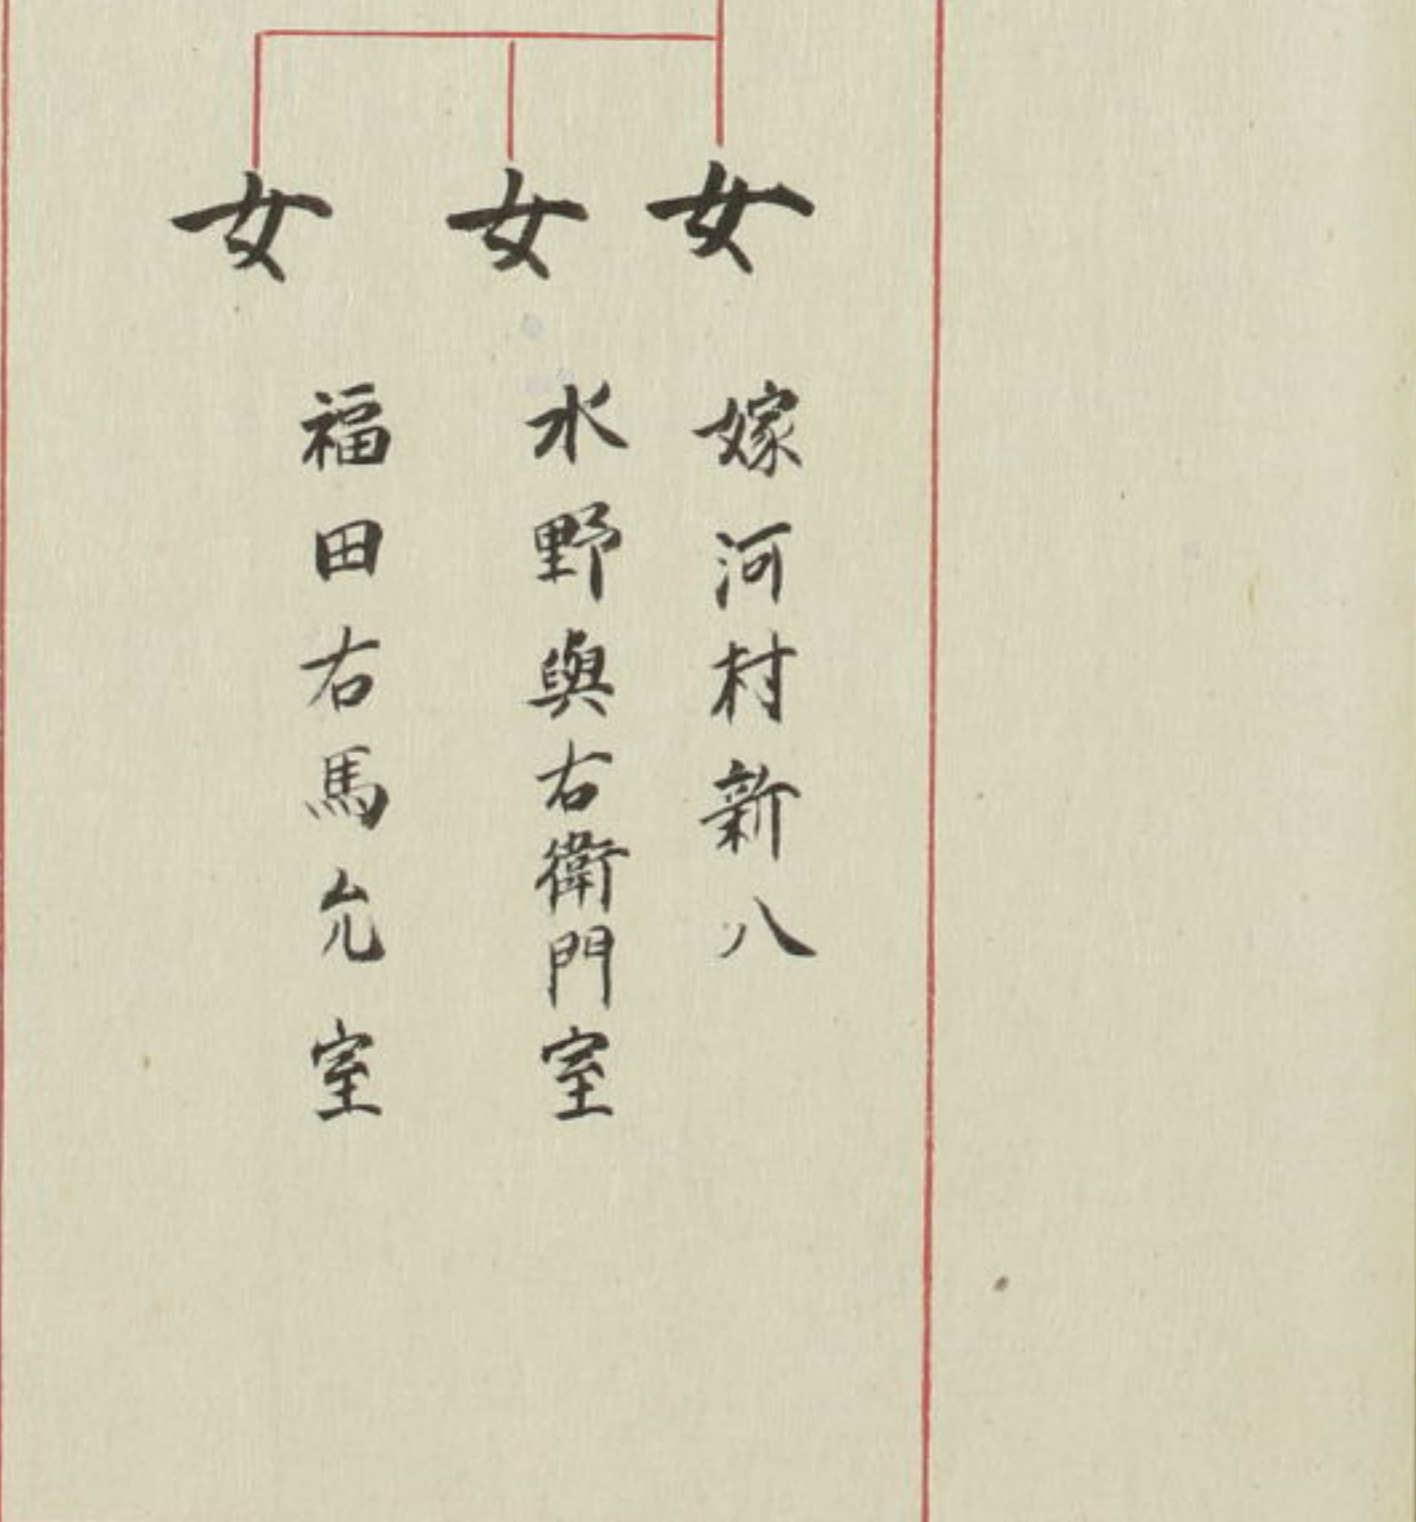 女
嫁河村新八
女
水野與右衛門室
女
福田右馬允室